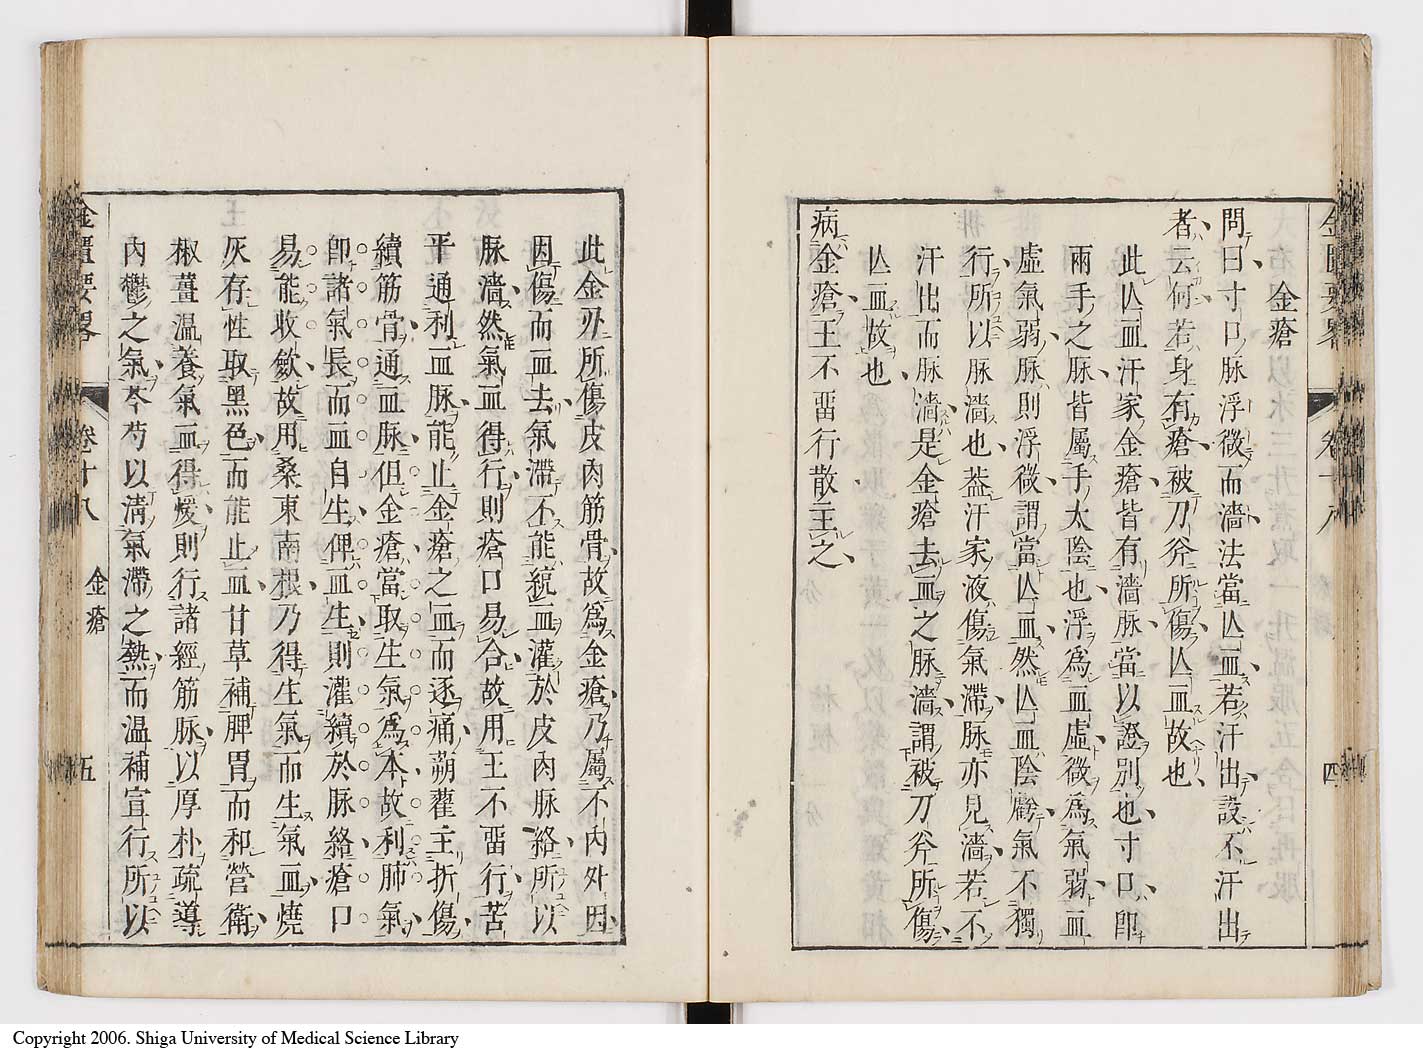 金瘡
問曰寸口脉浮微而濇法當亾血若汗出設不汗出
者云何若身有瘡被刀斧所傷亾血故也
此亾血汗家金瘡皆有濇脉當以證別也寸口卽
兩手之脉皆屬手太陰也浮爲血虛微爲氣弱血
虛氣弱脉則浮微謂當亾血然亾血陰虧氣不獨
行所以脉濇也葢汗家液傷氣滯脉亦見濇若不
汗出而脉濇是金瘡去血之脉濇謂被刀斧所傷
亾血故也
病金瘡王不畱行散主之
金匱要畧 卷十八 四
此金刅所傷皮肉筋骨故爲金瘡乃屬不內外因
因傷而血去氣滯不能統血灌於皮肉脉絡所以
脉濇然氣血得行則瘡口易合故用王不畱行苦
平通利血脉能止金瘡之血而逐痛蒴藋主折傷
續筋骨通血脉但金瘡當取生氣爲本故利肺氣
卽諸氣長而血自生俾血生則灌續於脉絡瘡口
易能收歛故用桑東南根乃得生氣而生氣血燒
灰存性取黑色而能止血甘草補脾胃而和營衛
椒薑溫養氣血得煖則行諸經筋脉以厚朴疏導
內鬱之氣芩芍以淸氣滯之熱而温補宣行所以
金匱要畧 卷十八 金瘡 五
Copyright 2006. Shiga University of Medical Science Library